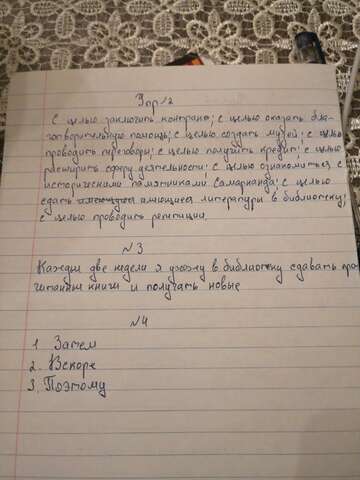 Упр 2
С целью заключить контракт; с целью оказать бла-
готворительную помощь; с целью создать музей; с целью
проводить переговоры; с целью получить кредит; с целью
расширить сферу деятельности; с целью ознакомиться с
историческими памятниками Самарканда; с целью
сдать имеющиеся литературы в библиотеку;
с целью проводить репетиции.
№3
Каждые две недели я ухожу в библиотеку сдавать про-
читанные книги и получать новые
№4
1. Затем
2. Вскоре
3. Поэтому